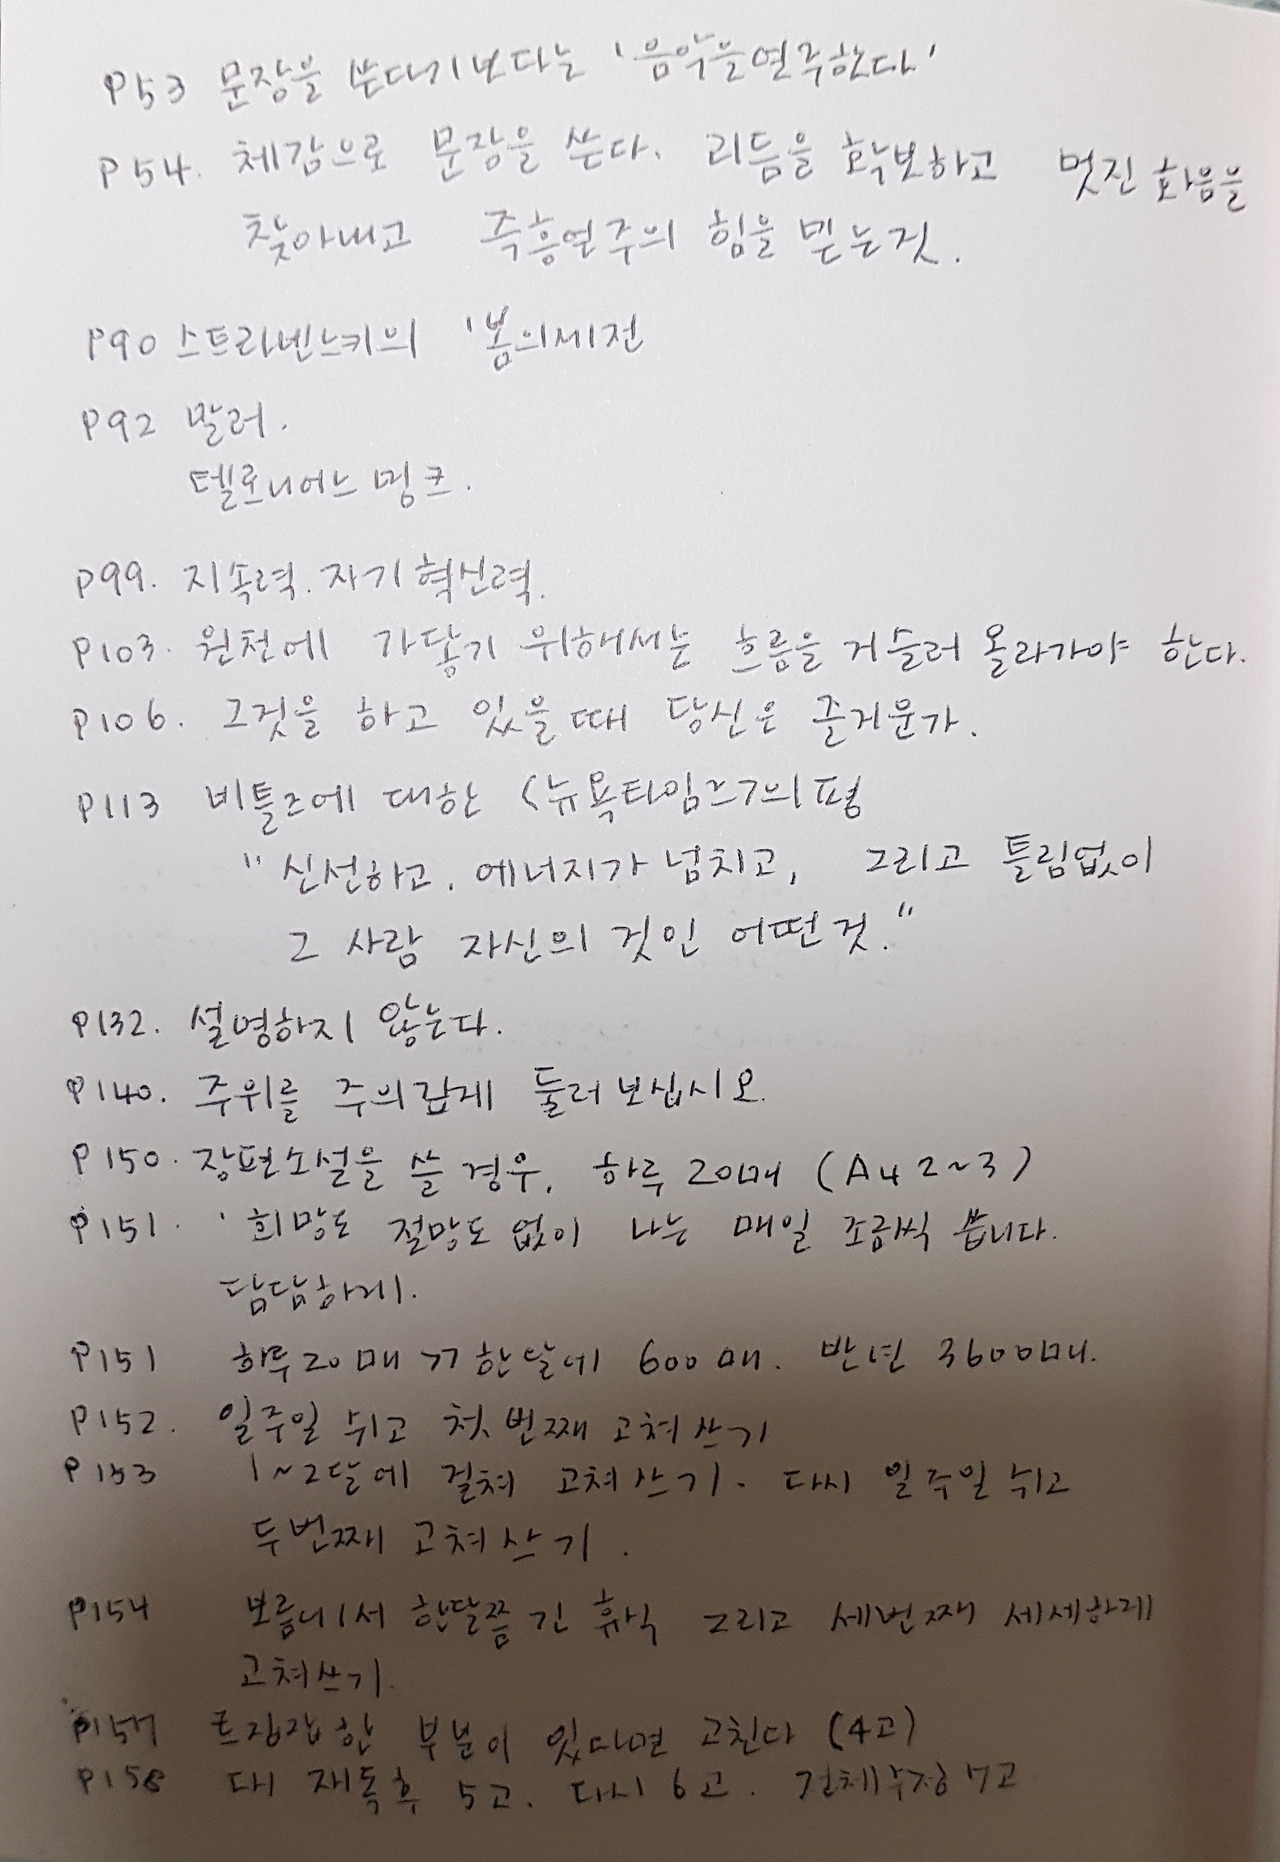 P53 문장을 쓴다기보다는 '음악을연주한다'
P54. 체감으로 문장을 쓴다. 리듬을 확보하고 멋진 화음을
찾아내고 즉흥연주의 힘을 믿는것.
P90 스트라빈스키의 '봄의제전
P92 말러.
텔로니어스 몽크.
P99. 지속력. 자기혁신력.
P103. 원천에 가닿기 위해서는 흐름을 거슬러 올라가야 한다.
P106. 그것을 하고 있을때 당신은 즐거운가.
P113 비틀즈에 대한 <뉴욕타임즈>의 평
"신선하고, 에너지가 넘치고, 그리고 틀림없이
그 사람 자신의 것인 어떤것."
P132. 설명하지 않는다.
P140. 주위를 주의깊게 둘러보십시오.
P150. 장편소설을 쓸 경우, 하루 20매 (A4 2~3)
P151. '희망도 절망도 없이 나는 매일 조금씩 씁니다.
담담하게.
P151 하루20매 >> 한달에 600매. 반년 3600매.
P152. 일주일 쉬고 첫번째 고쳐쓰기
P153 1~2달에 걸쳐 고쳐쓰기. 다시 일주일 쉬고
두번째 고쳐쓰기.
P154 보름에서 한달쯤 긴 휴식 그리고 세번째 세세하게
고쳐쓰기.
P157 트집잡한 부분이 있다면 고친다 (4고)
P158 재독후 5고. 다시 6고. 전체수정 7고